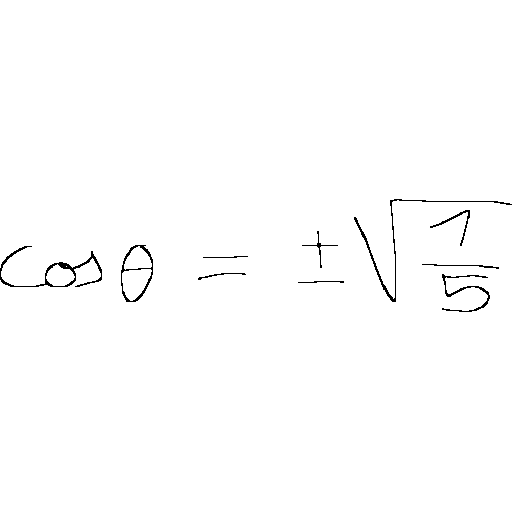 cos θ = ±√(1/5)